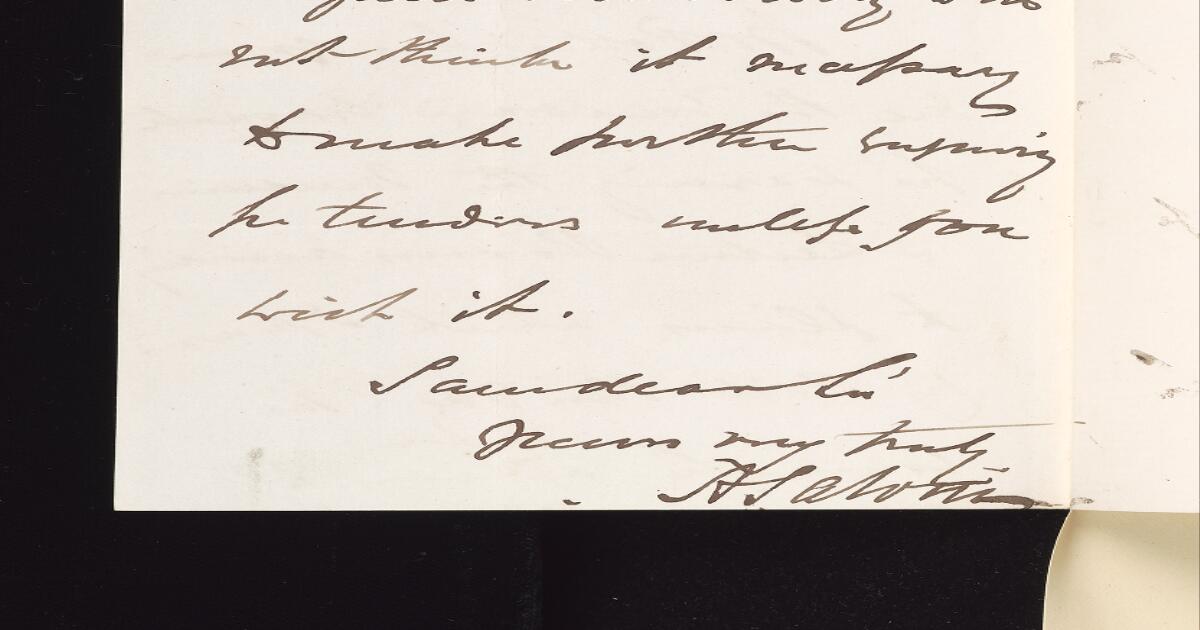 not think it necessary
to make further enquiry
he tenders unless you
wish it.
I am dear Sir
Yours very truly